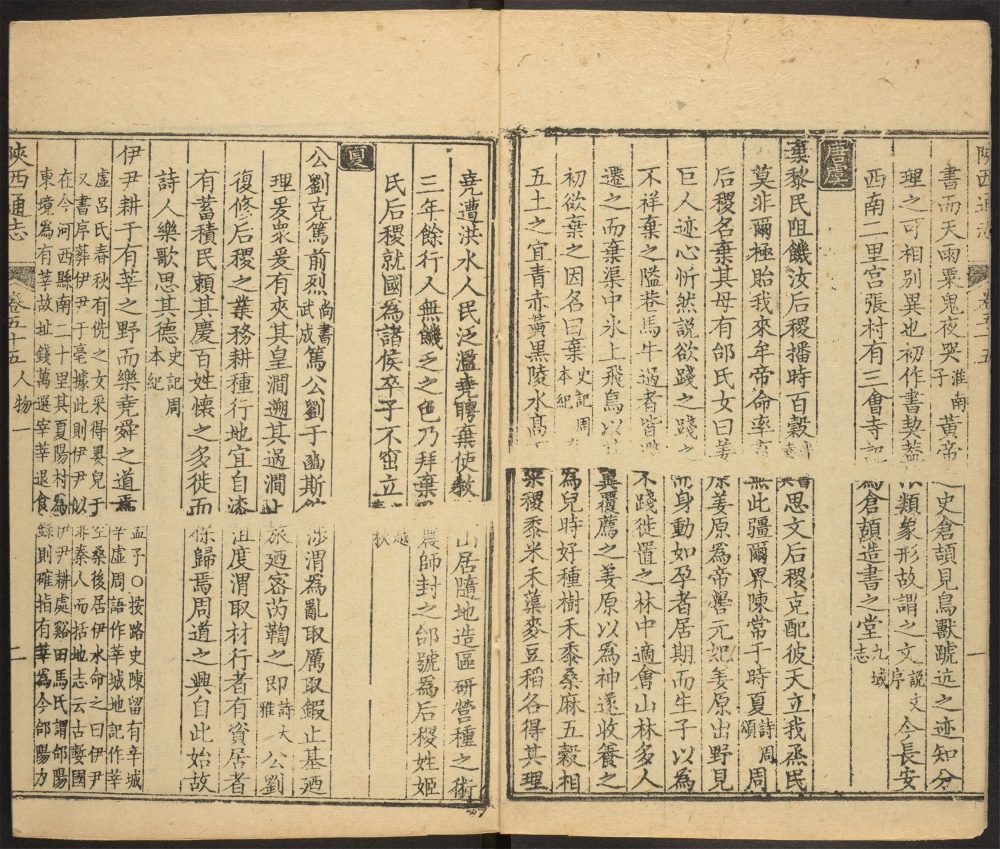 陝西通志 卷五十五 一
書而天雨粟鬼夜哭淮南子黃帝之史倉頡見鳥獸蹏迒之迹知分
理之可相別異也初作書契蓋依類象形故謂之文說文序今長安
西南二里宮張村有三會寺記爲倉頡造書之堂九域志
唐虞
棄黎民阻饑汝后稷播時百穀思文后稷克配彼天立我烝民
莫非爾極貽我來牟帝命率育無此疆爾界陳常于時夏詩周頌周
后稷名棄其母有邰氏女曰姜原姜原爲帝嚳元妃姜原出野見
巨人迹心忻然說欲踐之踐之而身動如孕者居期而生子以爲
不祥棄之隘巷馬牛過者皆辟不踐徙置之林中適會山林多人
遷之而棄渠中冰上飛鳥以其翼覆薦之姜原以爲神遂收養之
初欲棄之因名曰棄史記周本紀棄爲兒時好種樹禾黍桑麻五穀相
五土之宜青赤黃黑陵水高下粱稷黍米禾蕖麥豆稻各得其理
堯遭洪水人民泛濫堯聘棄使教民山居隨地造區研營種之術
三年餘行人無饑乏之色乃拜棄爲農師封之邰號爲后稷姓姬
氏后稷就國爲諸侯卒子不窋立吳越春秋
夏
公劉克篤前烈尚書武成篤公劉于豳斯館涉渭爲亂取厲取鍜止基迺
理爰衆爰有夾其皇澗遡其過澗止旅迺密芮鞫之即詩大雅公劉
復修后稷之業務耕種行地宜自漆沮度渭取材行者有資居者
有蓄積民賴其慶百姓懷之多徙而保歸焉周道之興自此始故
詩人樂歌思其德史記周本紀
伊尹耕于有莘之野而樂堯舜之道焉孟子○按路史陳留有辛城辛虛周語作莘城地記作莘
虛呂氏春秋有侁之女采得嬰兒于空桑後居伊水命之曰伊尹
又書序葬伊尹于亳據此則伊尹似非秦人而括地志云古㜪國
在今河西縣南二十里其夏陽村爲伊尹耕處谿田馬氏謂郃陽
東境爲有莘故址錢萬選宰莘退食錄則確指有莘爲今郃陽力
陝西通志 卷五十五 人物一 二